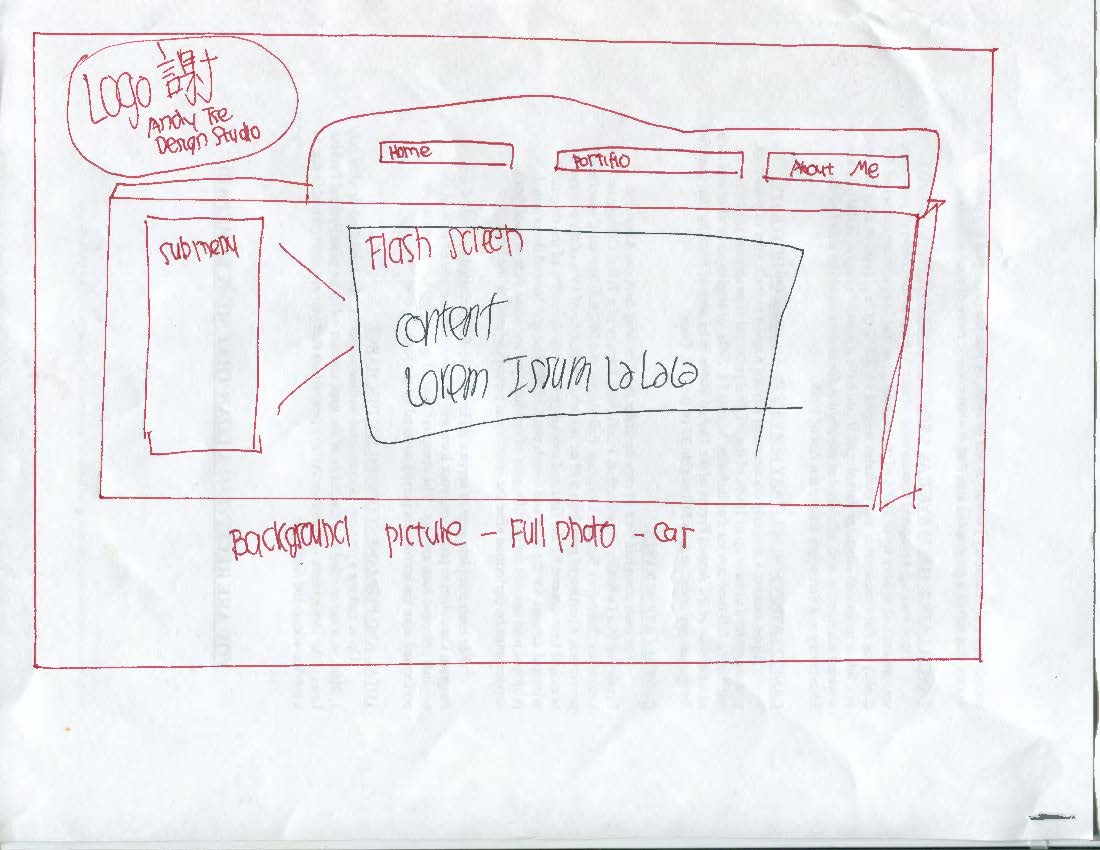 Logo 謝
Andy Tse
Design Studio
Home
Portifio
About Me
submenu
Flash screen
content
Lorem Issum la La la
Background picture - Full photo - car